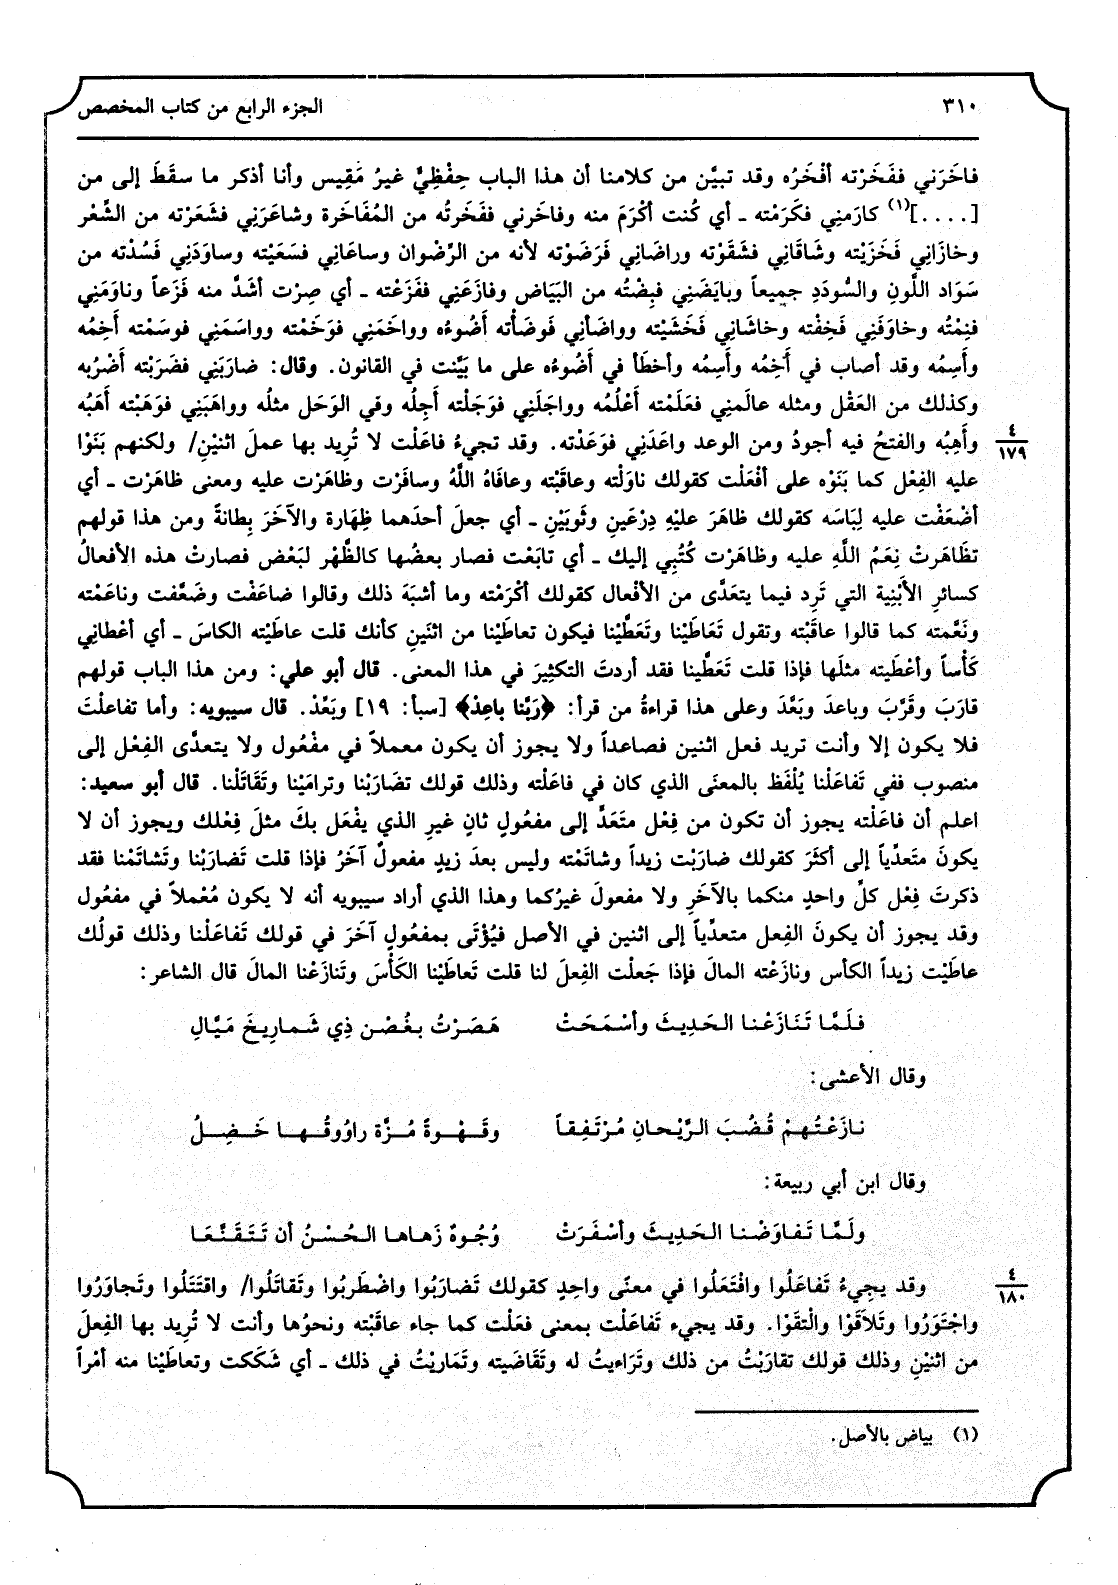 ٣١٠ الجزء الرابع من كتاب المخصص
فاخَرَني ففَخَرْته أفْخَرُه وقد تبيَّن من كلامنا أن هذا الباب حِفْظِيٌّ غيرُ مَقِيس وأنا أذكر ما سقَطَ إلى من
[. . . .](١) كارَمنِي فكَرَمْته ـ أي كُنت أكْرَمَ منه وفاخَرني ففَخَرتُه من المُفَاخَرة وشاعَرَنِي فشَعَرْته من الشِّعْر
وخازَانِي فَخَزَيْته وشَاقَانِي فشَقَوْته وراضَانِي فَرَضَوْته لأنه من الرِّضْوان وساعَانِي فسَعَيْته وساوَدَنِي فَسُدْته من
سَوَاد اللَّونِ والسُّودَدِ جميعاً وبايَضَنِي فبِضْتُه من البَيَاض وفازَعَنِي ففَزَعْته ـ أي صِرْت أشَدَّ منه فَزَعاً وناوَمَنِي
فنِمْتُه وخاوَفَنِي فَخِفْته وخاشَانِي فَخَشَيْته وواضَأَنِي فَوضَأْته أَضُوءُه وواخَمَنِي فوَخَمْته وواسَمَنِي فوسَمْته أَخِمُه
وأَسِمُه وقد أصاب في أَخِمُه وأَسِمُه وأخطَأ في أَضُوءُه على ما بَيَّنت في القانون. وقال: ضارَبَنِي فضَرَبْته أضْرُبه
وكذلك من العَقْل ومثله عالَمنِي فعَلَمْته أعْلُمُه وواجَلَنِي فوَجَلْته أَجِلُه وفي الوَحَل مثلُه وواهَبَنِي فوَهَبْته أَهَبُه
وأَهِبُه والفتحُ فيه أجودُ ومن الوعد واعَدَنِي فوَعَدْته. وقد تجيءُ فاعَلْت لا تُرِيد بها عملَ اثنَيْنِ/ ولكنهم بَنَوْا
٤
١٧٩
عليه الفِعْل كما بَنَوْه على أفْعَلْت كقولك ناوَلْته وعاقَبْته وعافَاهُ اللَّهُ وسافَرْت وظاهَرْت عليه ومعنى ظاهَرْت ـ أي
أضْعَفْت عليه لِبَاسَه كقولك ظاهَرَ عليْهِ دِرْعَينِ وثَوبَيْنِ ـ أي جعلَ أحدَهما ظِهَارة والآخَرَ بِطانةً ومن هذا قولهم
تظَاهَرتْ نِعَمُ اللَّهِ عليه وظاهَرْت كُتُبِي إليك ـ أي تابَعْت فصار بعضُها كالظَّهْر لبَعْض فصارتْ هذه الأفعالُ
كسائرِ الأَبْنِية التي تَرِد فيما يتعَدَّى من الأفْعال كقولك أكْرَمْته وما أشبَهَ ذلك وقالوا ضاعَفْت وضَعَّفت وناعَمْته
ونَعَّمته كما قالوا عاقَبْته وتقول تَعَاطَيْنا وتَعَطَّيْنا فيكون تعاطَيْنا من اثنَينِ كأنك قلت عاطَيْته الكاسَ ـ أي أعْطانِي
كَأْساً وأعْطَيته مثلَها فإذا قلت تَعَطَّينا فقد أردتَ التكثِيرَ في هذا المعنى. قال أبو علي: ومن هذا الباب قولهم
قارَبَ وقَرَّبَ وباعدَ وبَعَّدَ وعلى هذا قراءةُ من قرأ: ﴿رَبَّنا باعِدْ﴾ [سبأ: ١٩] وبَعِّدْ. قال سيبويه: وأما تفاعلْتَ
فلا يكون إلا وأنت تريد فعل اثنين فصاعداً ولا يجوز أن يكون معملاً في مفْعُول ولا يتعدَّى الفِعْل إلى
منصوب ففي تَفاعَلْنا يُلْفَظ بالمعنَى الذي كان في فاعَلْته وذلك قولك تضَارَبْنا وترامَيْنا وتَقَاتَلْنا. قال أبو سعيد:
اعلم أن فاعَلْته يجوز أن تكون من فِعْل متَعَدَّ إلى مفعُولٍ ثانٍ غيرِ الذي يفْعَل بكَ مثلَ فِعْلك ويجوز أن لا
يكونَ متَعدِّياً إلى أكثَرَ كقولك ضارَبْت زيداً وشاتَمْته وليس بعدَ زيدٍ مفعولٌ آخَرُ فإذا قلت تَضارَبْنا وتَشاتَمْنا فقد
ذكرتَ فِعْل كلِّ واحدٍ منكما بالآخَرِ ولا مفعولَ غيرُكما وهذا الذي أراد سيبويه أنه لا يكون مُعْملاً في مفعُول
وقد يجوز أن يكونَ الفِعل متعدِّياً إلى اثنين في الأصل فيُؤْتَى بمفعُولٍ آخَرَ في قولك تَفاعَلْنا وذلك قولُك
عاطَيْت زيداً الكأس ونازَعْته المالَ فإذا جَعلْت الفِعلَ لنا قلت تَعاطَيْنا الكَأْسَ وتَنازَعْنا المالَ قال الشاعر:
فلَمَّا تَنَازَعْنا الحَدِيثَ وأسْمَحَتْ هَصَرْتُ بغُصْن ذِي شَمارِيخَ مَيَّالِ
وقال الأعشى:
نازَعْتُهمْ قُضُبَ الرَّيْحانِ مُرْتَفِقاً وقَهْوةً مُزَّة راوُوقُها خَضِلُ
وقال ابن أبي ربيعة:
ولَمَّا تَفاوَضْنا الحَدِيثَ وأسْفَرَتْ وُجُوهٌ زَهاها الحُسْنُ أن تَتَقَنَّعَا
وقد يجِيءُ تَفاعَلُوا وافْتَعَلُوا في معنًى واحِدٍ كقولك تَضارَبُوا واضْطَربُوا وتَقاتَلُوا/ واقتَتَلُوا وتَجاوَرُوا
٤
١٨٠
واجْتَوَرُوا وتَلاَقَوْا والْتقَوْا. وقد يجيء تَفاعَلْت بمعنى فعَلْت كما جاء عاقَبْته ونحوُها وأنت لا تُرِيد بها الفِعلَ
من اثنَيْنِ وذلك قولك تقارَبْتُ من ذلك وتَرَاءيتُ له وتَقَاضَيته وتَمَاريْتُ في ذلك ـ أي شَكَكت وتعاطَيْنا منه أمْراً
(١) بياض بالأصل.